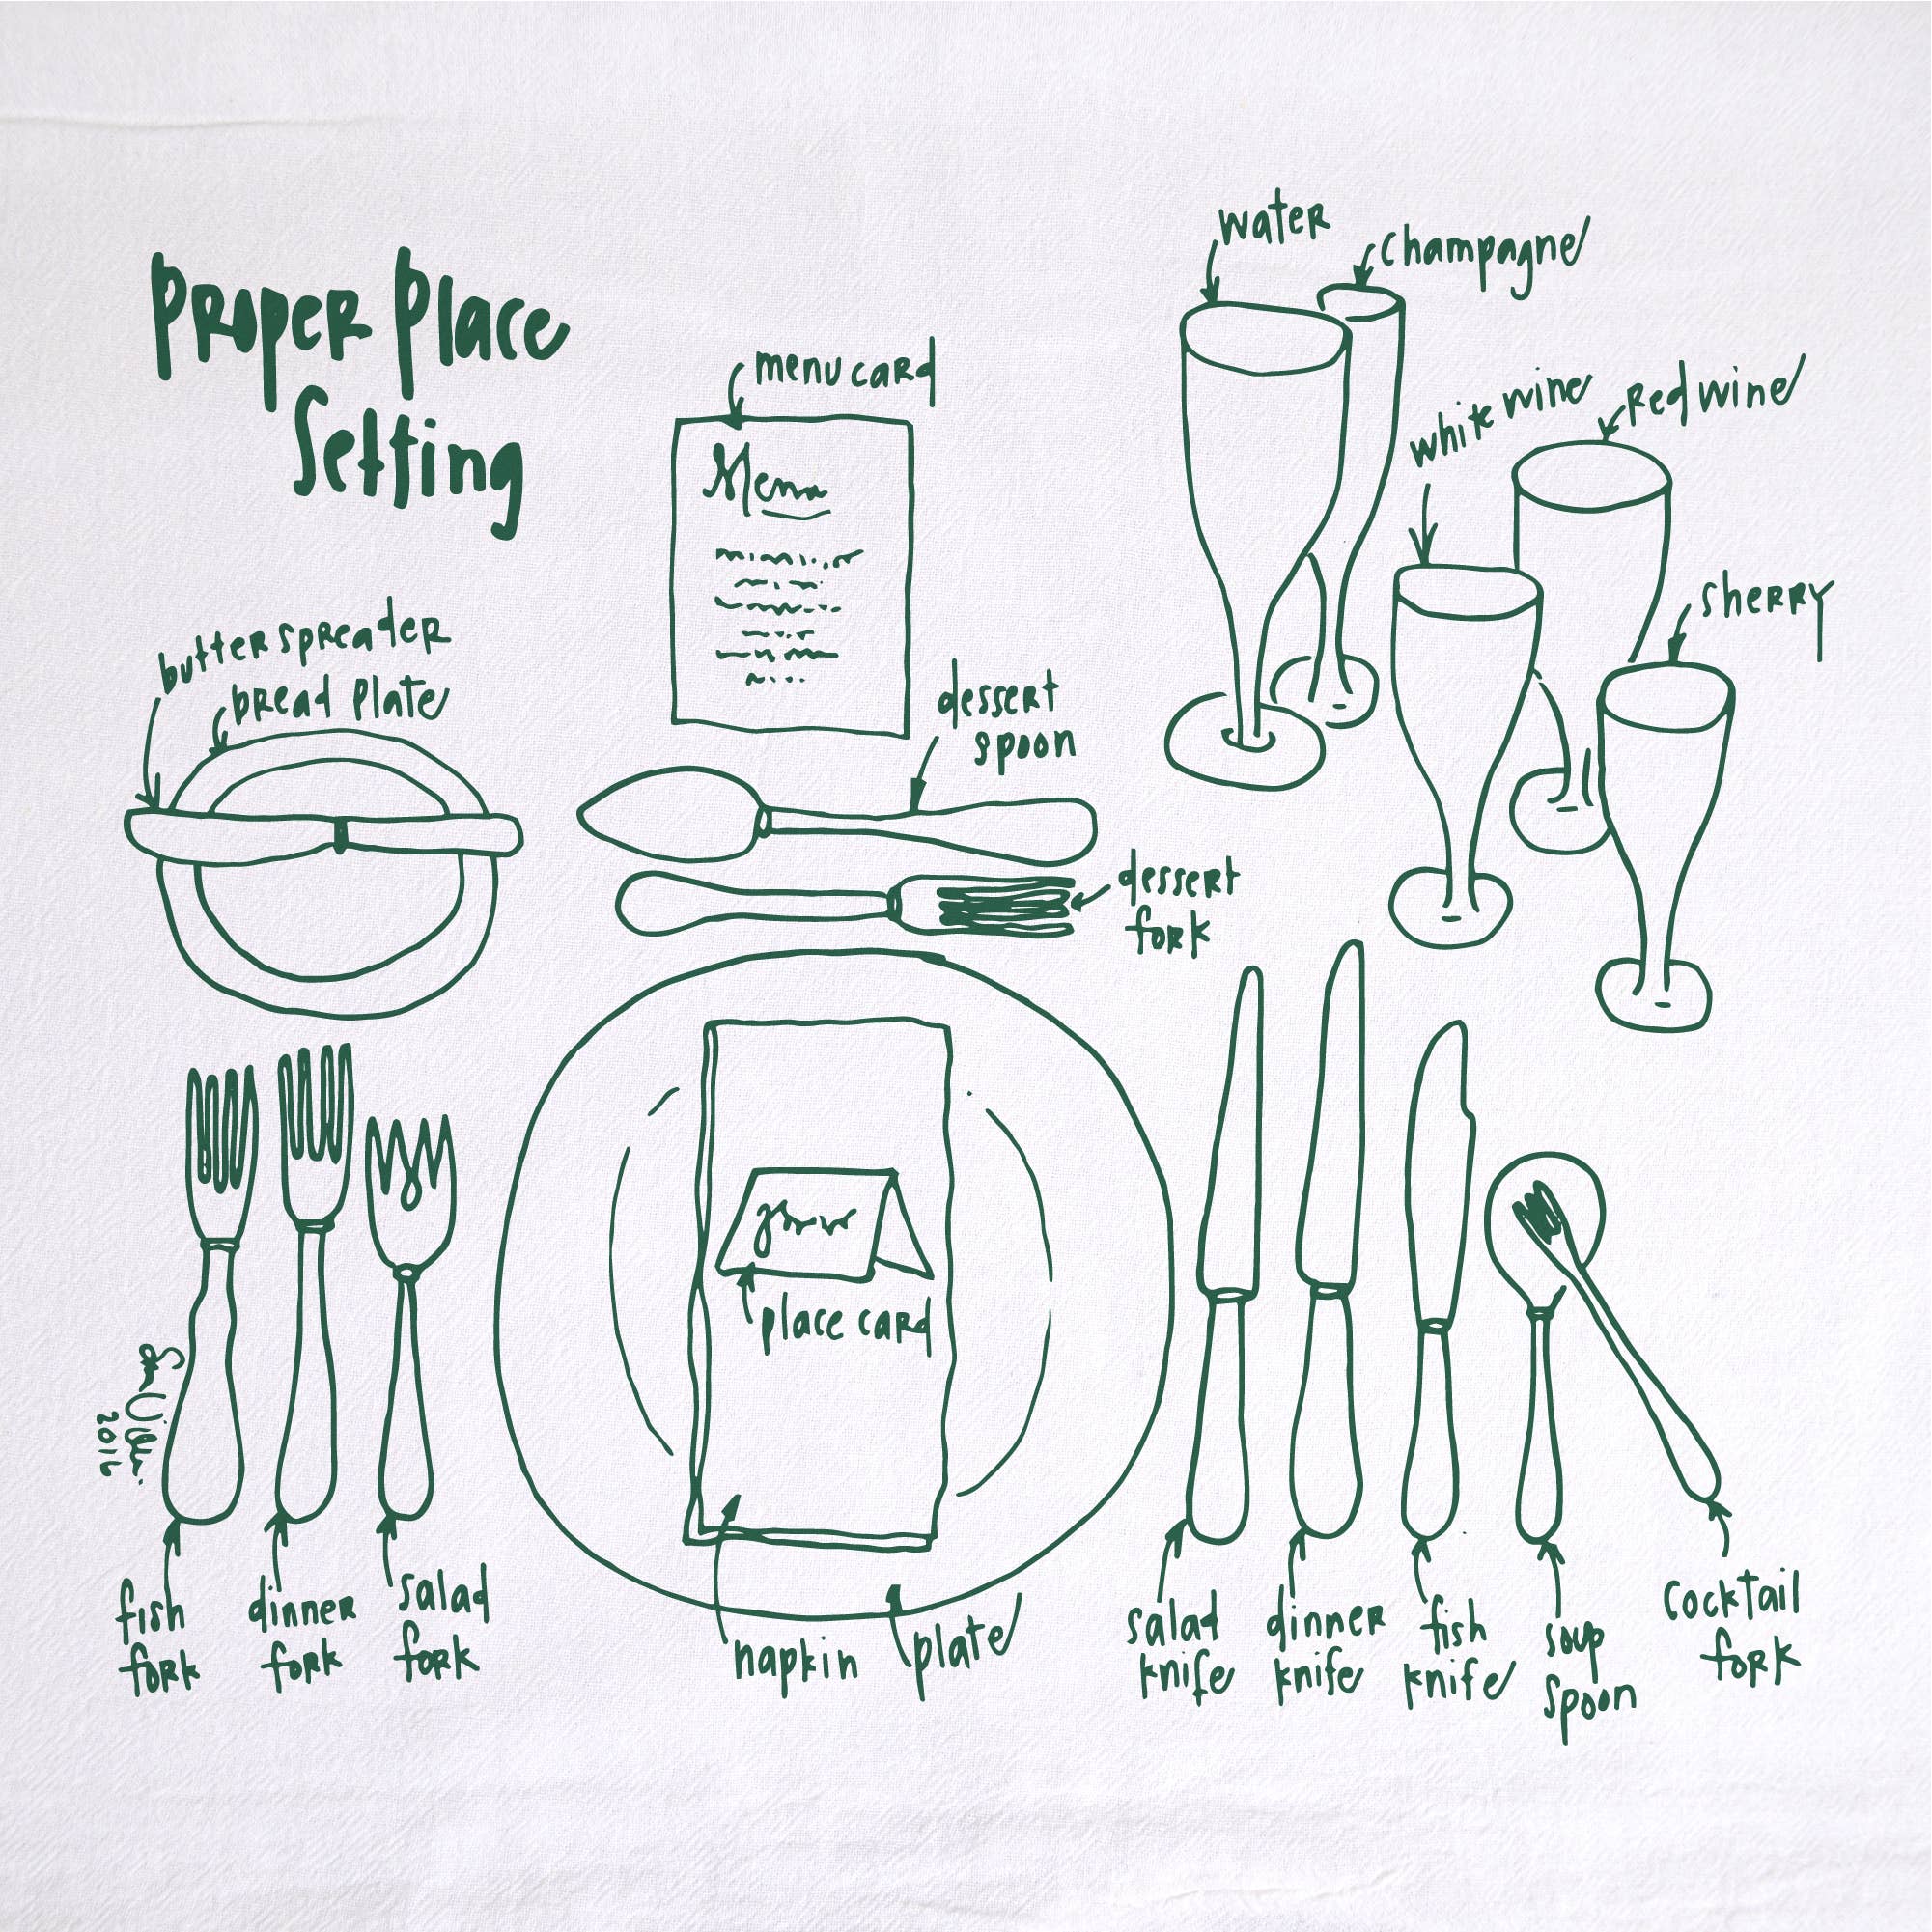 Proper Place
Setting
water
champagne
menu card
Menu
white wine
red wine
sherry
butter spreader
bread plate
dessert
spoon
dessert
fork
place card
2016
fish
fork
dinner
fork
salad
fork
napkin
plate
salad
knife
dinner
knife
fish
knife
soup
spoon
cocktail
fork